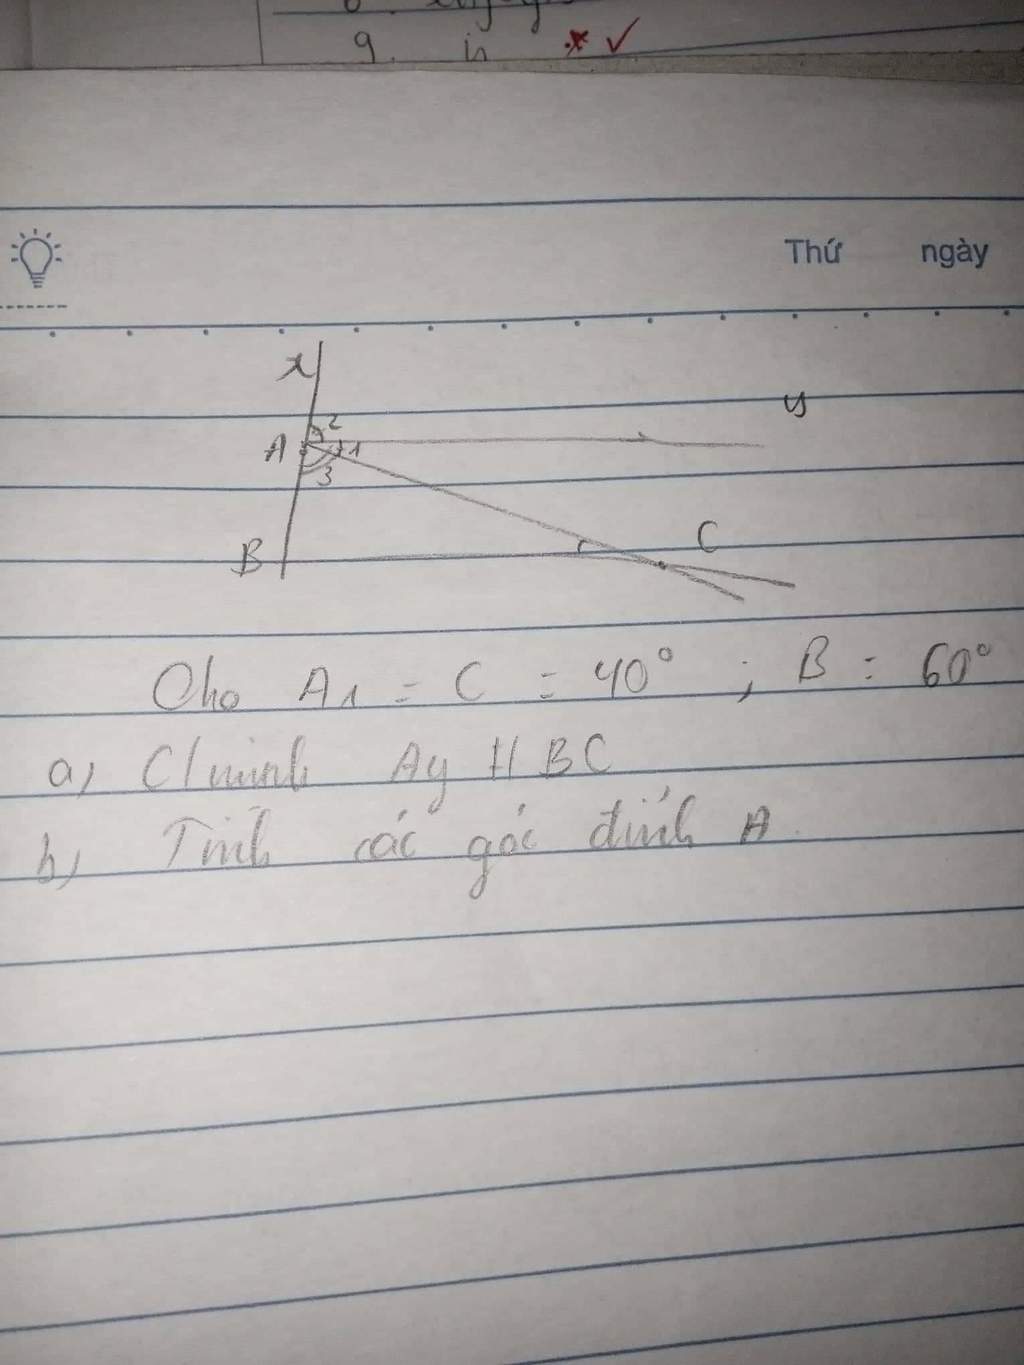 9. in
Thứ ngày
x
y
A 2 1
3
B C
Cho A1 = C = 40° ; B = 60°
a) C/minh Ay // BC
b) Tính các góc đỉnh A